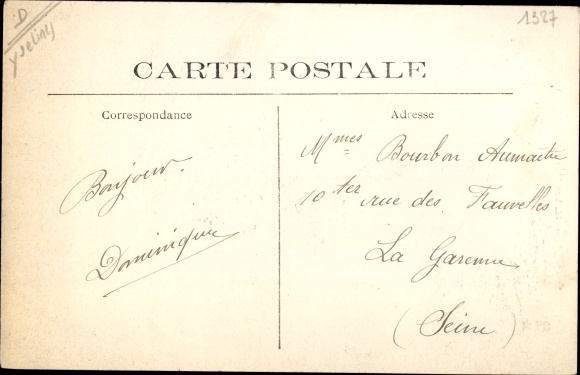 :D
Yvelines
1327
CARTE POSTALE
Correspondance
Adresse
Bonjour.
Dominique
Mmes Bourbon Aumaitre
10 ter rue des Fauvelles
La Garenne
(Seine)